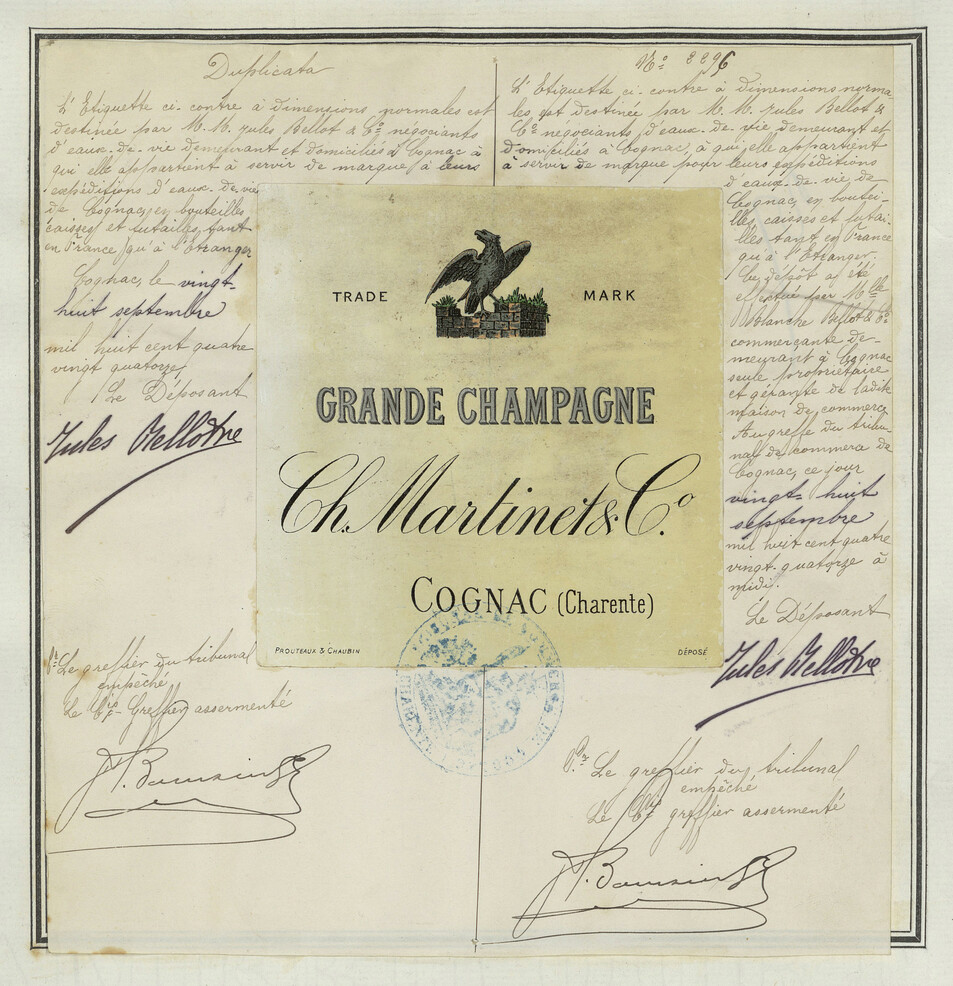 Duplicata
L'Etiquette ci-contre à dimensions normales est
destinée par M.M. Jules Bellot & Cie négociants
d'eaux-de-vie demeurant et domiciliés à Cognac à
qui elle appartient à servir de marque à leurs
expéditions d'eaux-de-vie
de Cognac, en bouteilles
caisses et futailles, tant
en France qu'à l'Etranger
Cognac, le vingt-
huit septembre
mil huit cent quatre
vingt quatorze,
Le Déposant
Jules Bellot
Le greffier du tribunal
empêché
Le Cis-Greffier assermenté
No 2296
L'Etiquette ci-contre à dimensions norma-
les est destinée par M.M. Jules Bellot &
Cie négociants d'eaux-de-vie demeurant et
domiciliés à Cognac, à qui elle appartient
à servir de marque pour leurs expéditions
d'eaux-de-vie de
Cognac, en boutei-
lles, caisses et futai-
lles tant en France
qu'à l'Etranger.
Ce dépôt a été
effectué par Mlle
Blanche Bellot & Cie
commerçante de-
meurant à Cognac
seule propriétaire
et gérante de ladite
maison de commerce
Au greffe du tribu-
nal de commerce de
Cognac, ce jour
vingt-huit
septembre
mil huit cent quatre
vingt-quatorze à
midi.
Le Déposant
Jules Bellot
Pr Le greffier du tribunal
empêché
Le Cis greffier assermenté
TRADE MARK
GRANDE CHAMPAGNE
Ch. Martinet & Co.
COGNAC (Charente)
PROUTEAUX & CHAUBIN
DÉPOSÉ